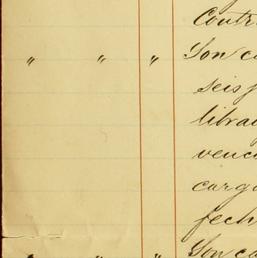 Contr
" " " Son c
seis p
libra
venci
carg
fech
" " " Son ca